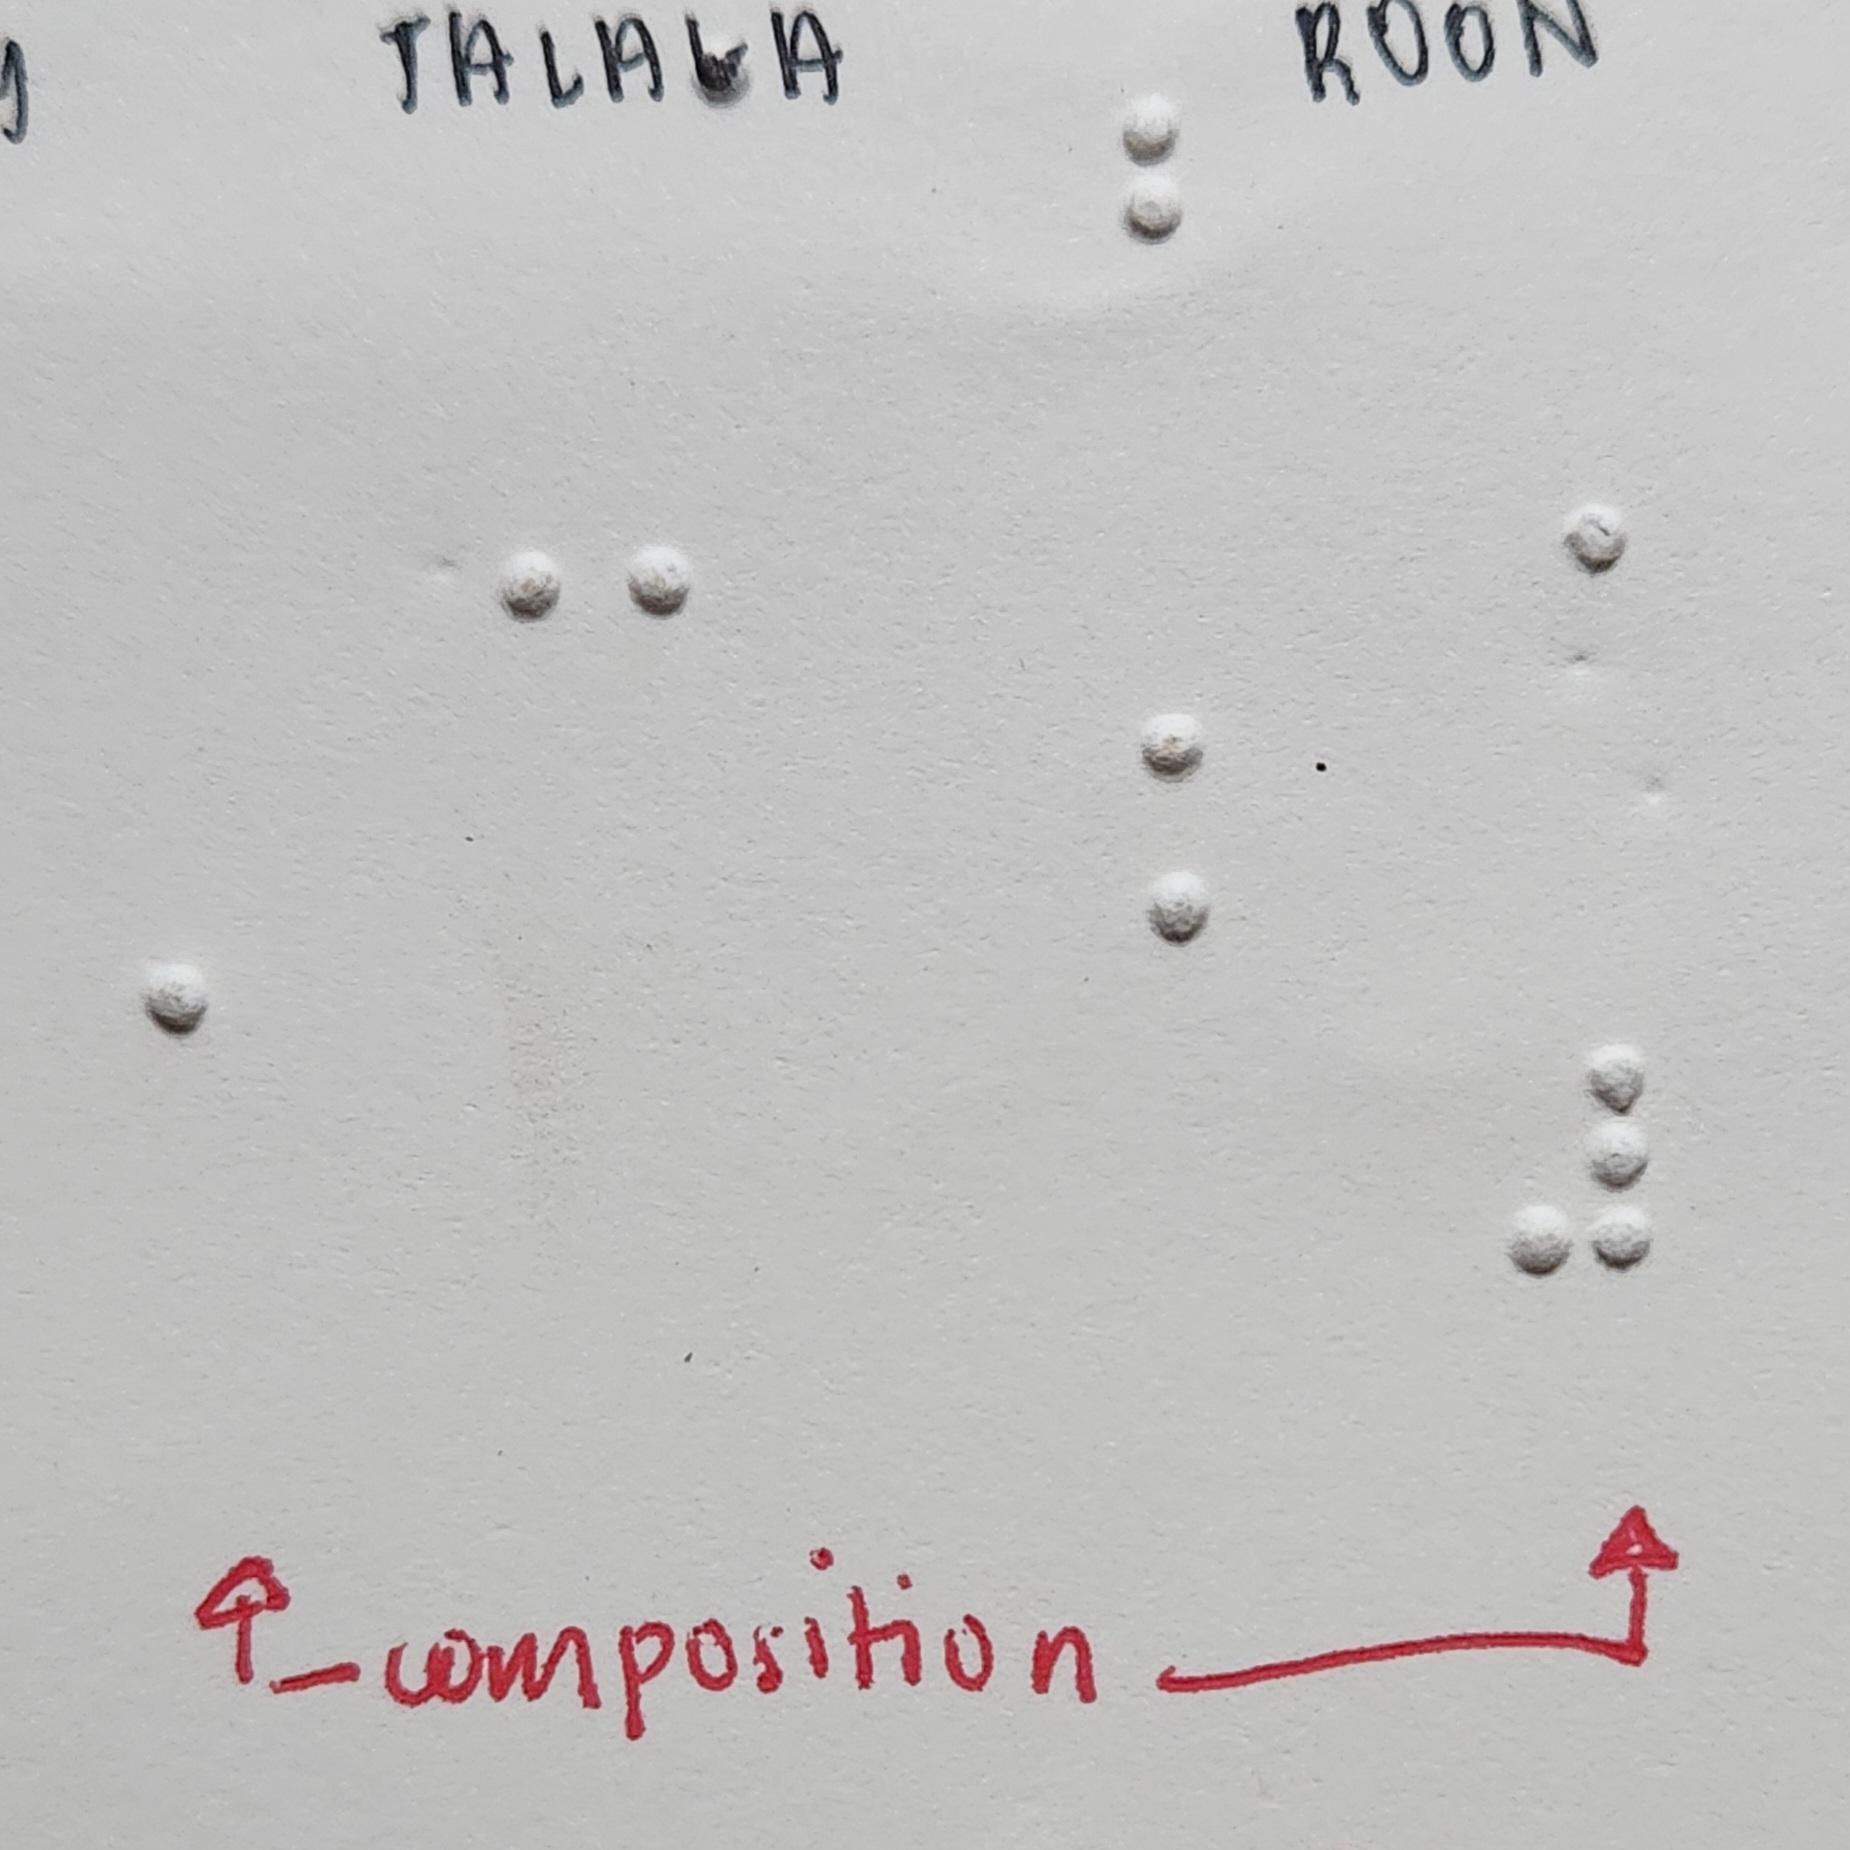 JALAWA ROON
composition